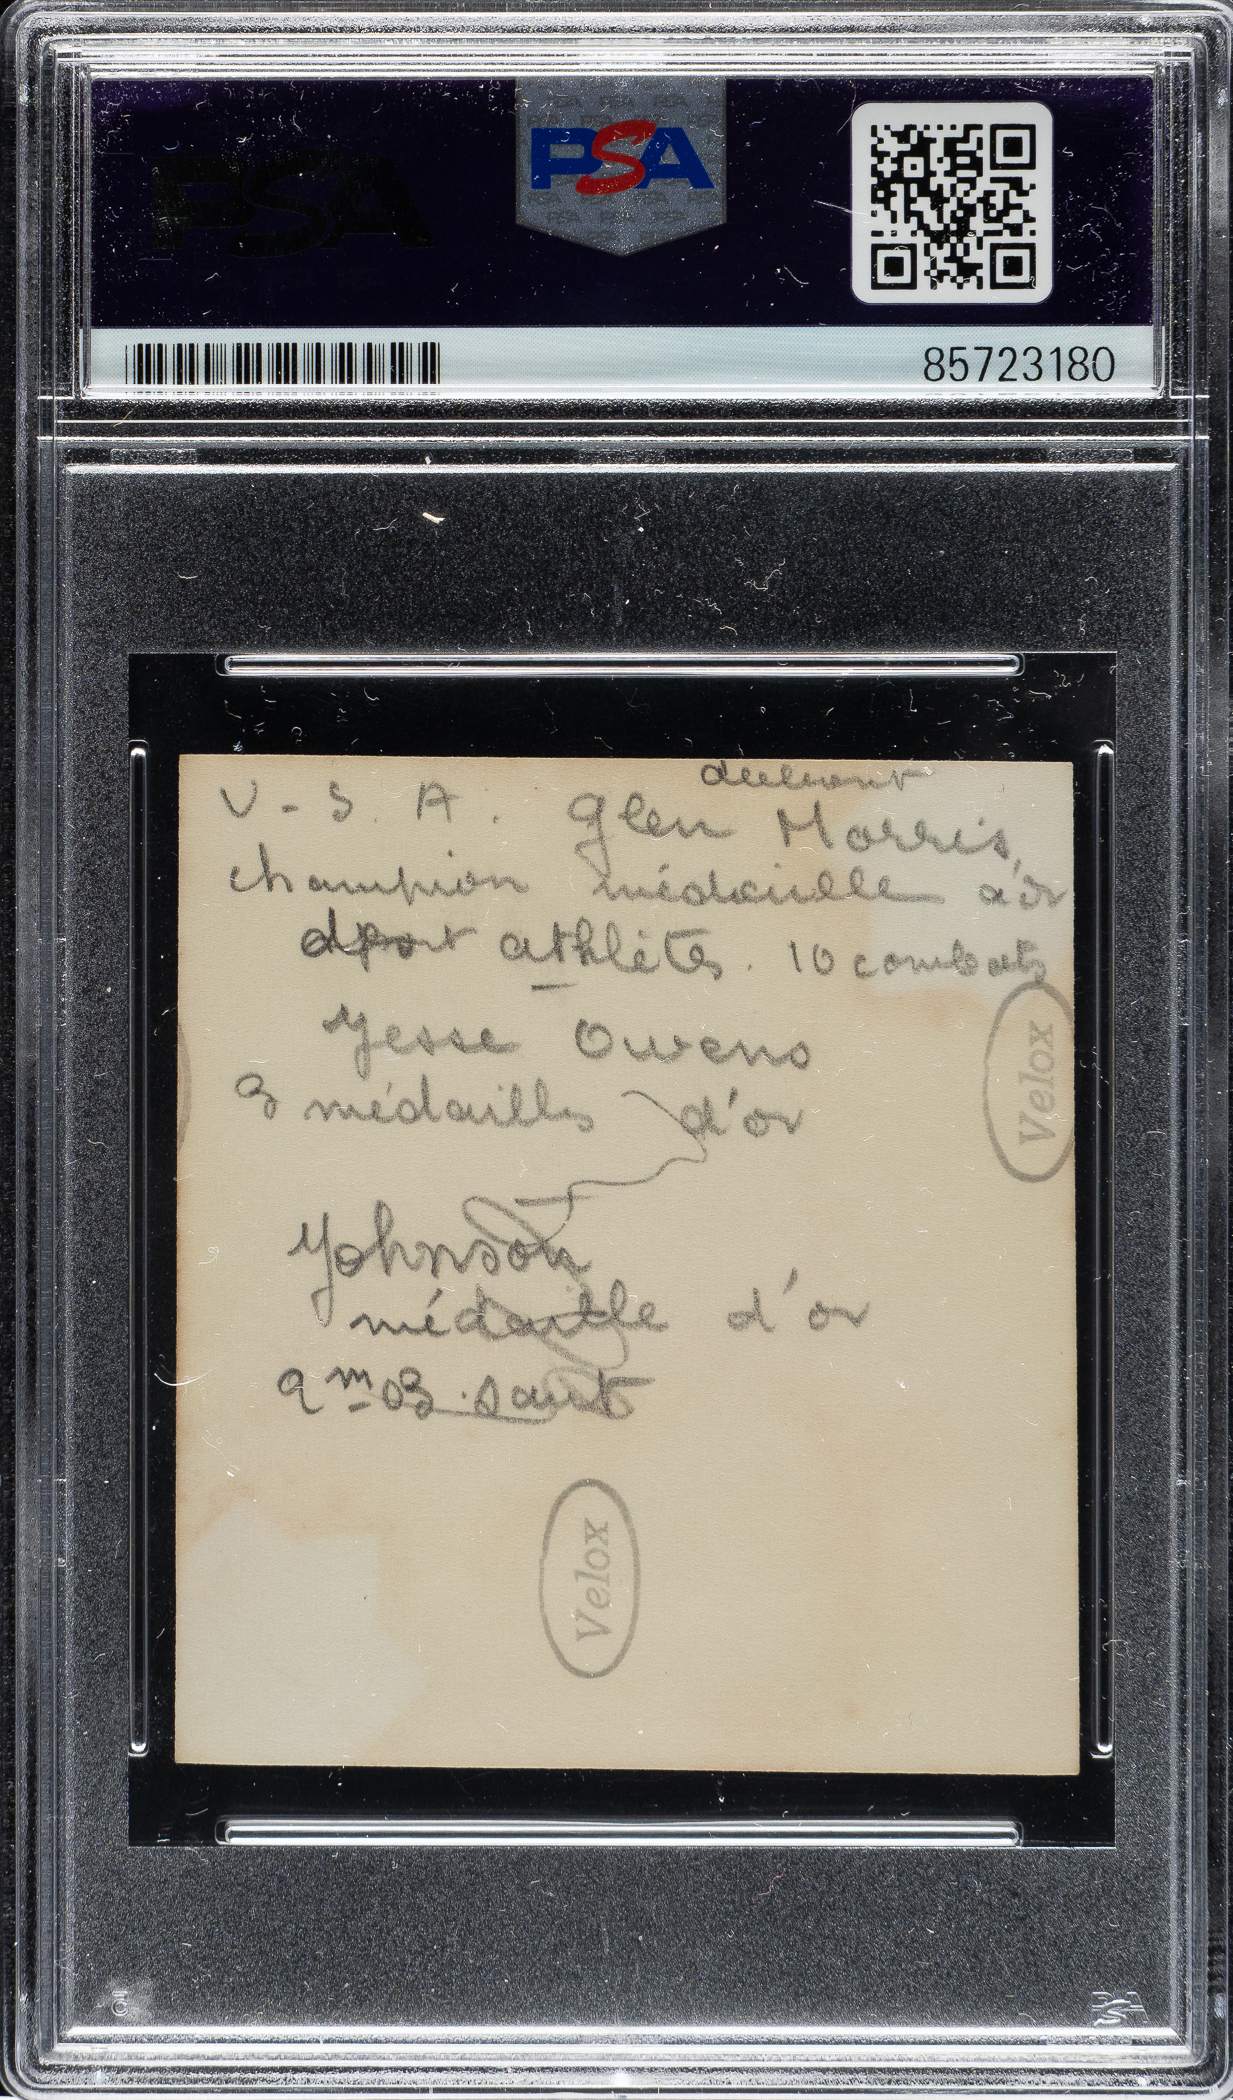 PSA
PSA
85723180
devant
U-S. A. Glen Morris,
champion médaille d'or
dport athlètes. 10 combats
Yesse Owens
3 médailles d'or
Yohnson
médaille d'or
2m03 saut
Velox
Velox